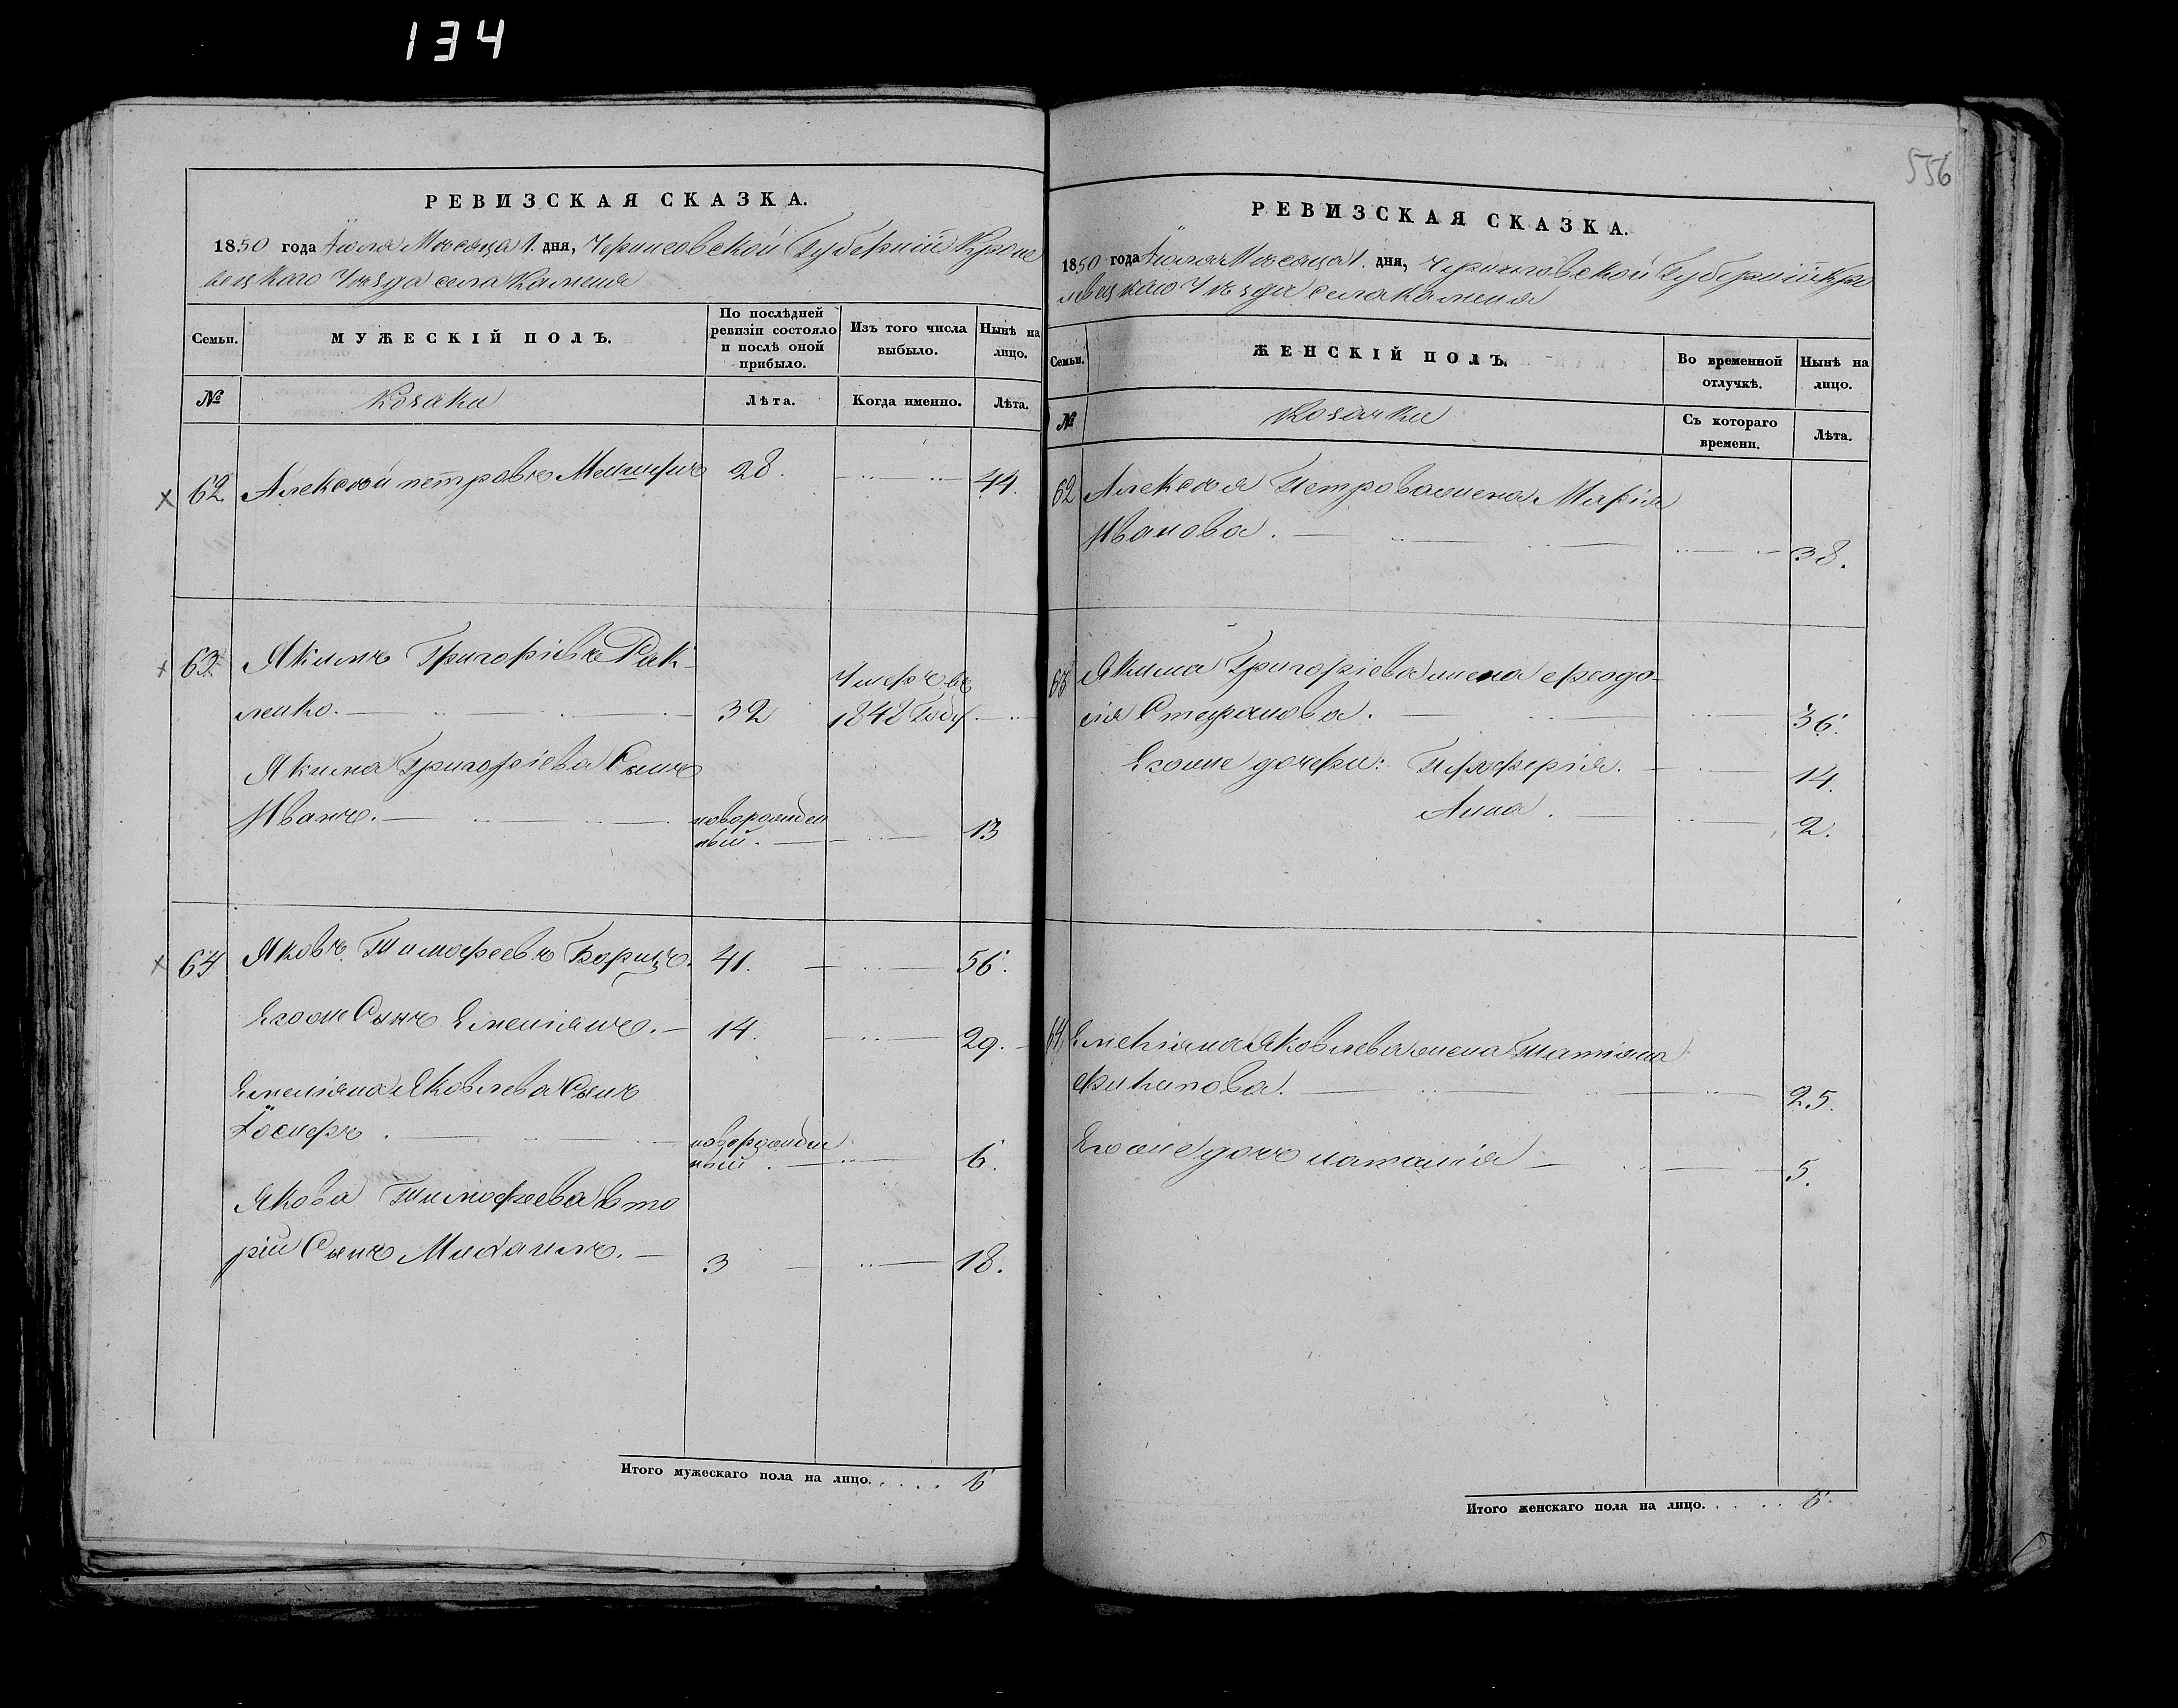 134
РЕВИЗСКАЯ СКАЗКА.
1850 года Іюля Месяца 1. дня, Черниговской Губерніи Кроле
вецкаго Уезда села Каменя
Семьи.
МУЖЕСКІЙ ПОЛЪ.
По послѣдней ревизіи состояло и послѣ оной прибыло.
Изъ того числа выбыло.
Нынѣ на лицо.
№
Козаки
Лѣта.
Когда именно.
Лѣта.
62 Алексѣй петровъ 28. 44.
63 Якимъ Григоріевъ Рак-
ленко. 32 Умеръ въ 1848 Году
Якима Григоріева Сынъ
Иванъ. новорожден
ный. 13
64 Яковъ Тимофеевъ Борицъ. 41. 56.
Егоже Сынъ Емеліянъ. 14. 29.
Емеліяна Яковлева Сынъ
Іосифъ. новорожден
ный. 6.
Якова Тимофеева вто
рій Сынъ Михаилъ. 3 18.
Итого мужескаго пола на лицо. 6
556
РЕВИЗСКАЯ СКАЗКА.
1850 года Іюля Месяца 1. дня, Черниговской Губерніи Кро
левецкаго Уезда села Каменя
Семьи.
ЖЕНСКІЙ ПОЛЪ.
Во временной отлучкѣ.
Нынѣ на лицо.
№
Козачки
Съ котораго времени.
Лѣта.
62 Алексея Петрова жена Марія
Иванова. 38.
63 Якима Григоріева жена Феодо-
сія Стефанова. 36.
Егоже дочери: 14.
Анна. 2.
64 Емеліяна Яковлева жена Татіяна
Филипова. 25.
Егоже дочь наталія 5.
Итого женскаго пола на лицо. 6.